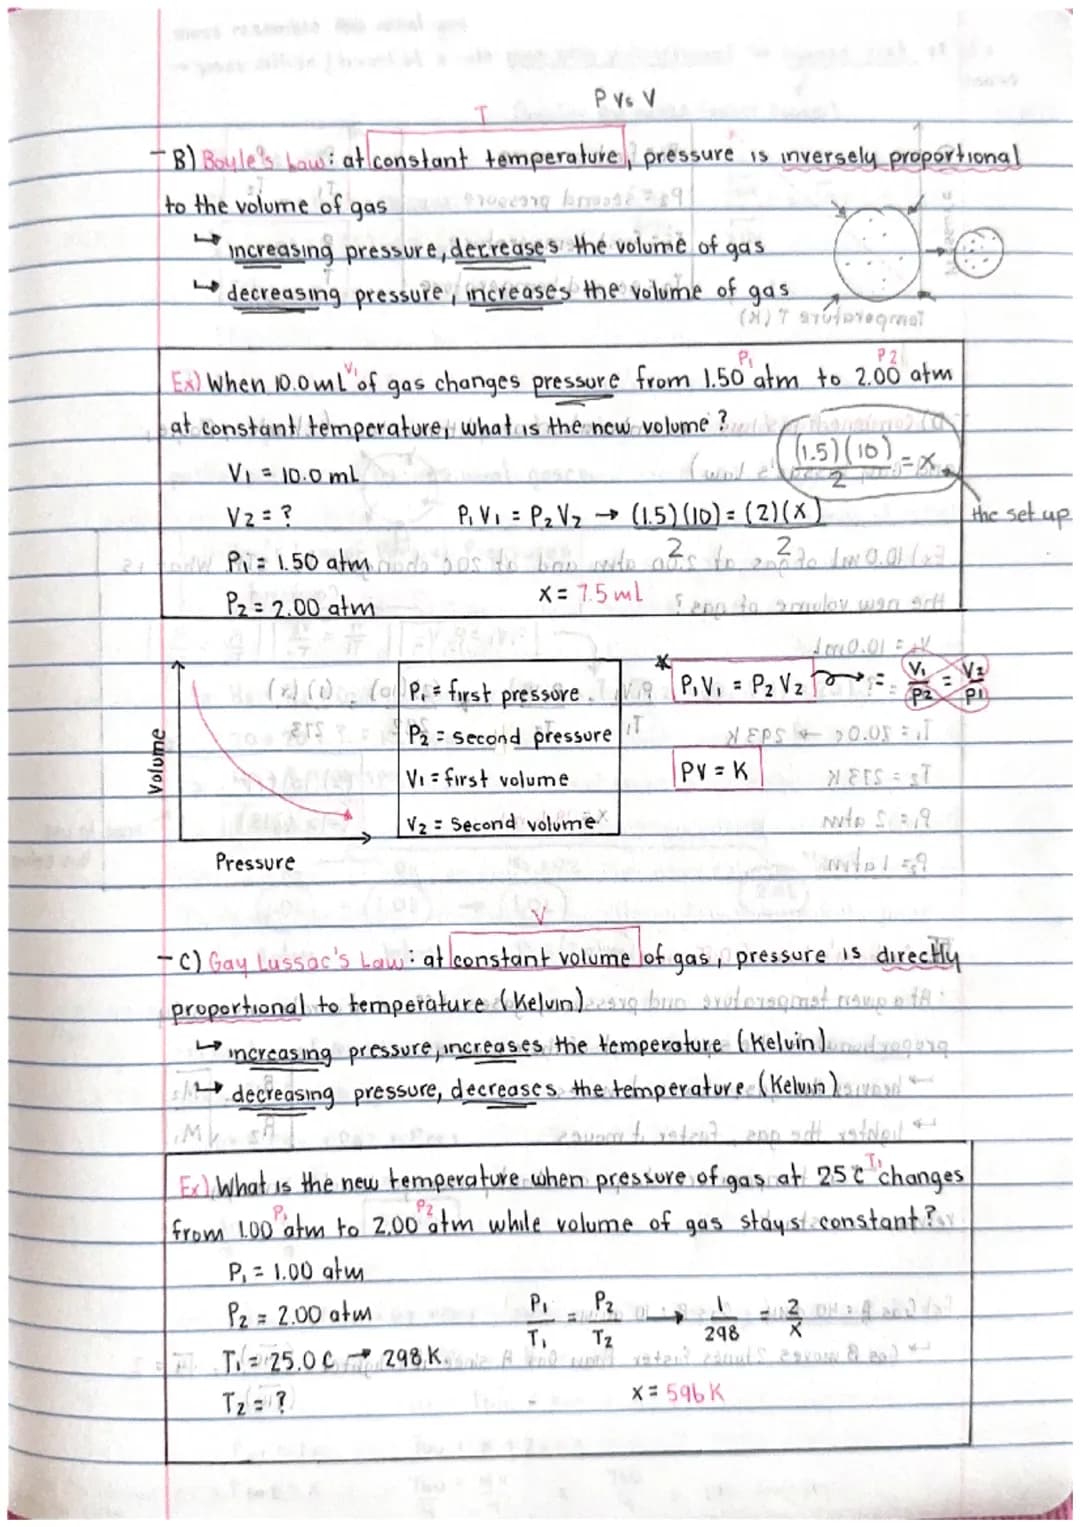 P Vs V
T
- B) Boyle's Law: at constant temperature, pressure is inversely proportional
to the volume of gas
↳ increasing pressure, decreases the volume of gas
↳ decreasing pressure, increases the volume of gas
V₁ P₁ P2
Ex) When 10.0 mL of gas changes pressure from 1.50 atm to 2.00 atm
at constant temperature, what is the new volume?
(1.5)(10) / 2 = x
the set up
V₁ = 10.0 mL
V2 = ?
P₁ = 1.50 atm
P₂ = 2.00 atm
P₁V₁ = P₂V₂ → (1.5)(10) = (2)(x)
2 2
x = 7.5 mL
Volume
Pressure
P₁ = first pressure
P₂ = second pressure
V₁ = first volume
V₂ = Second volume
* P₁V₁ = P₂V₂ → V₁/P2 = V2/P1
PV = K
V
- C) Gay Lussac's Law: at constant volume of gas, pressure is directly
proportional to temperature (Kelvin)
↳ increasing pressure, increases the temperature (Kelvin)
↳ decreasing pressure, decreases the temperature (Kelvin)
T₁
Ex) What is the new temperature when pressure of gas at 25 C changes
P₁ P2
from 1.00 atm to 2.00 atm while volume of gas stays constant?
P₁ = 1.00 atm
P₂ = 2.00 atm
T₁ = 25.0 C → 298 K
T₂ = ?
P₁/T₁ = P₂/T₂ → 1/298 = 2/x
x = 596 K